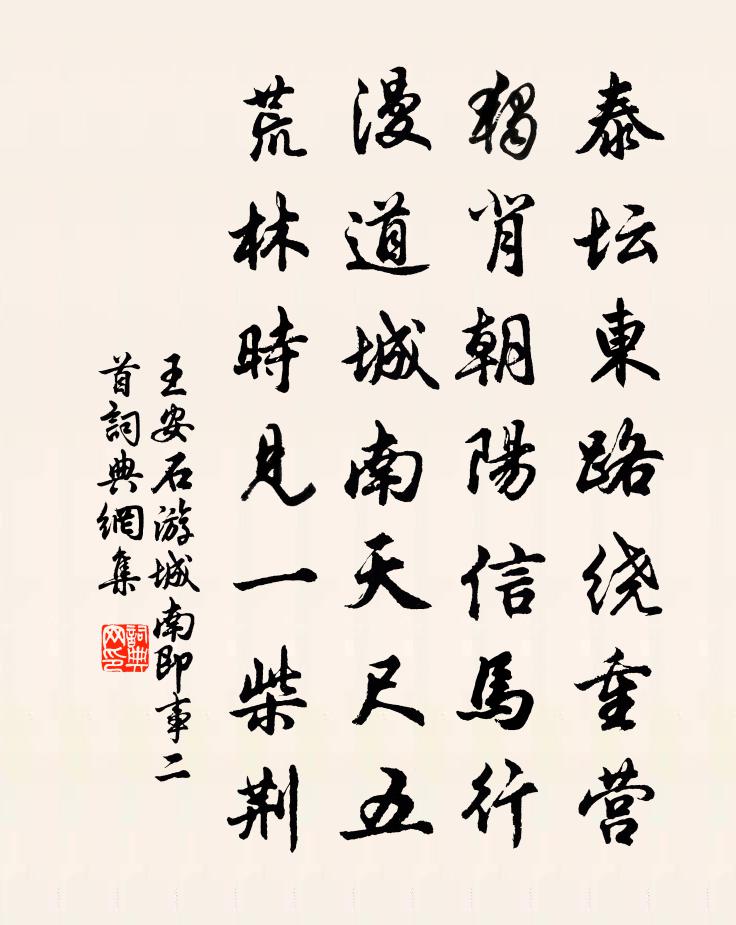 泰坛東路绕重营
獨背朝陽信馬行
漫道城南天尺五
荒林時見一柴荆
王安石游城南即事二
首詞典網集
詞典
网印